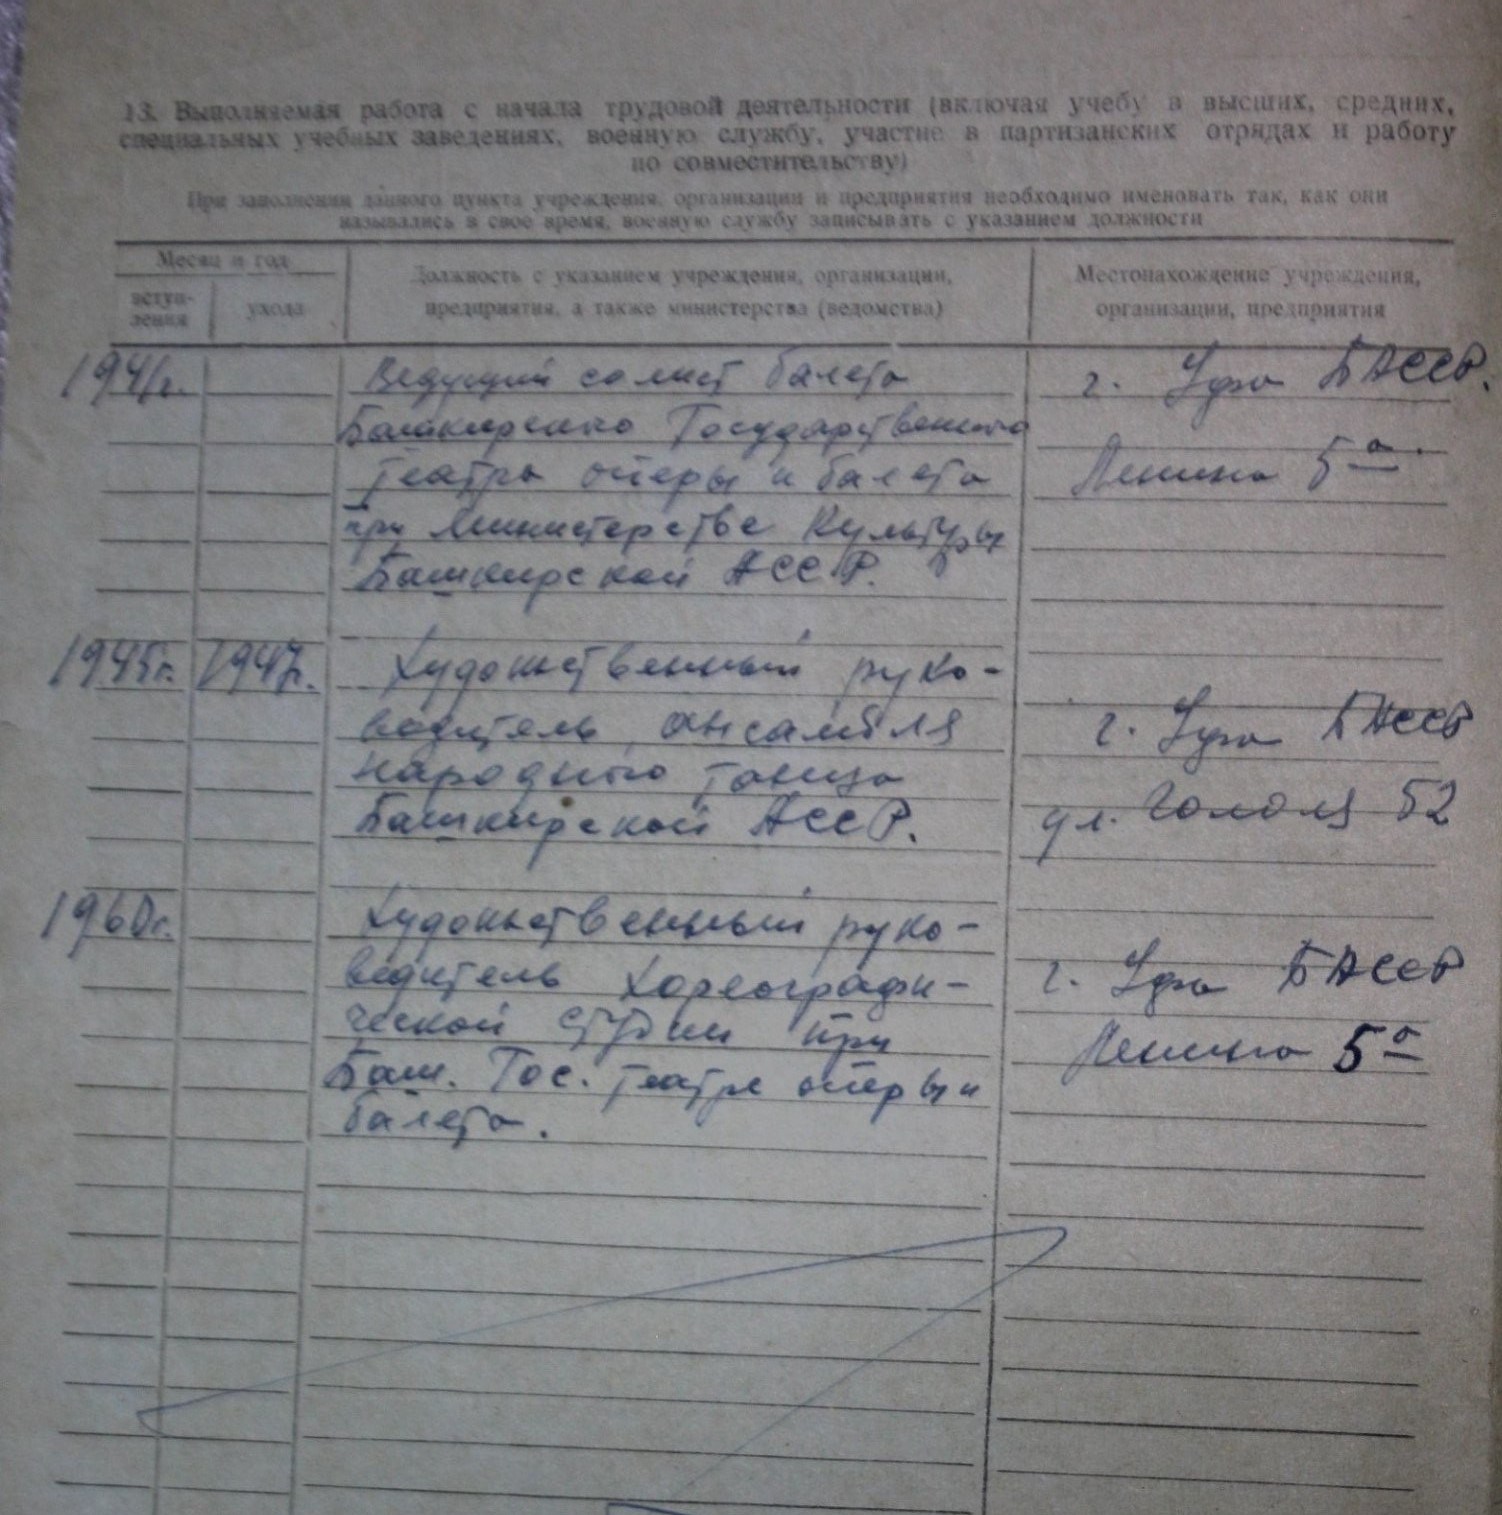 13. Выполняемая работа с начала трудовой деятельности (включая учебу в высших, средних,
специальных учебных заведениях, военную службу, участие в партизанских отрядах и работу
по совместительству)
При заполнении данного пункта учреждения, организации и предприятия необходимо именовать так, как они
назывались в свое время, военную службу записывать с указанием должности
Месяц и год
вступ-
ления
ухода
Должность с указанием учреждения, организации,
предприятия, а также министерства (ведомства)
Местонахождение учреждения,
организации, предприятия
1941г.
Ведущий солист балета
Башкирского Государственного
театра оперы и балета
при Министерстве Культуры
Башкирской АССР.
г. Уфа БАССР.
Ленина 5а
1945г. 1947г.
Художественный руко-
водитель ансамбля
народного танца
Башкирской АССР.
г. Уфа БАССР
ул. Гоголя 52
1960г.
Художественный руко-
водитель хореографи-
ческой студии при
Баш. Гос. театре оперы и
балета.
г. Уфа БАССР
Ленина 5а